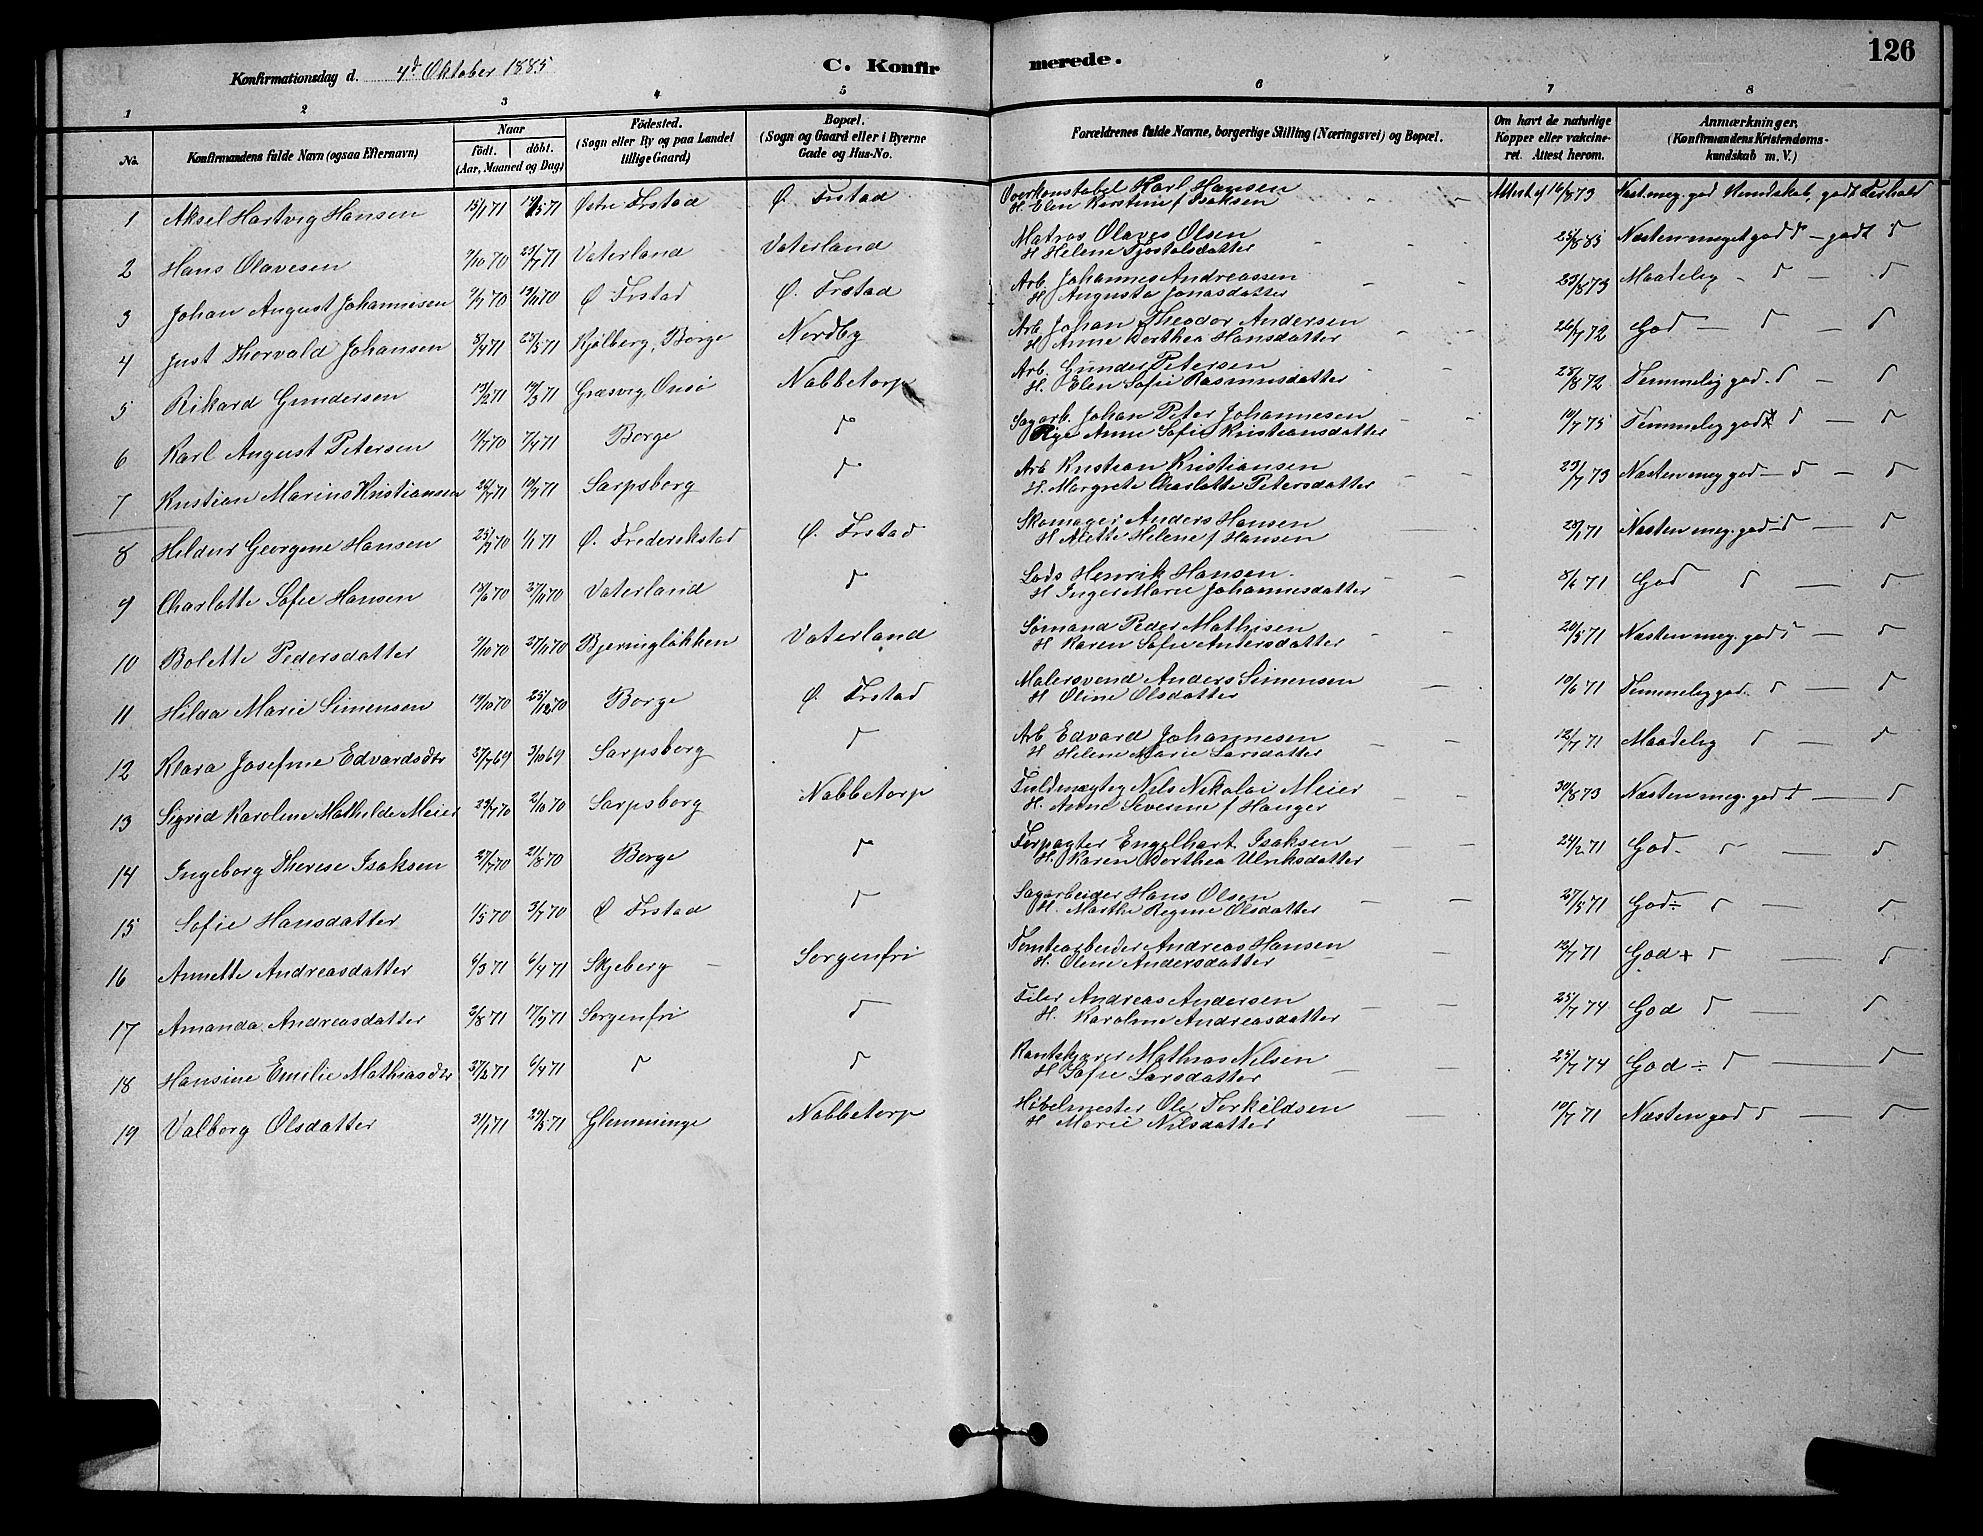 126
Konfirmationsdag d. 4d Oktober 1885
C. Konfirmerede.
1 2 3 4 5 6 7 8
No. Konfirmandens fulde Navn (ogsaa Efternavn) Naar født. døbt. (Aar, Maaned og Dag) Fødested. (Sogn eller By og paa Landet tillige Gaard) Bopæl. (Sogn og Gaard eller i Byerne Gade og Hus-No. Forældrenes fulde Navne, borgerlige Stilling (Næringsvei) og Bopæl. Om havt de naturlige Kopper eller vakcineret. Attest herom. Anmærkninger. (Konfirmandens Kristendomskundskab m. V.)
1 Aksel Hartvig Hansen 15/1 71 Østre Frstad Ø. Frstad Overkonstabel Karl Hansen Attest af 16/8 73 Næst. meg. god Kundskab, godt Forhold
H. Elen Kirstine f Isaksen
2 Hans Olavesen 9/10 70 23/7 71 Vaterland Vaterland Matros Olaves Olsen 25/8 85 Næsten meget god d - godt d
H Helene Fjostolsdatter
3 Johan August Johannesen Ø Frstad Ø. Frstad Arb. Johannes Andreassen 23/8 73 Maadelig - d - d
H Augusta Jonasdatter
4 Just Thorvald Johansen 3/4 71 29/5 71 Kjølberg, Borge Nordby Arb Johan Theodor Andersen 26/7 72 God - d - d
H Anne Dorthea Hansdatter
5 Rikard Gundersen 13/2 71 19/3 71 Græsvig Onsø Nabbetorp Arb. Gunder Petersen 25/8 72 Temmelig god. d - d
H. Elen Sofie Rasmusdatter
6 Karl August Petersen 7/4 71 Borge d Sagarb. Johan Peter Johannesen 10/7 75 Temmelig god d - d
Pige Anne Sofie Kristiansdatter
7 Kristian Marius Kristiansen Sarpsborg d Arb Kristian Kristiansen 23/7 73 Næsten meg god - d - d
H. Margrete Charlotte Petersdatter
8 Hildur Georgene Hansen 1/1 71 Ø. Frederikstad Ø. Frstad Skomager Anders Hansen Næsten meg. god - d - d
H Alette Helene f Hansen
9 Charlotte Sofie Hansen 27/11 70 Vaterland d Lods Henrik Hansen. 8/6 71 God d - d
H Inger Marie Johannesdatter
10 Bolette Pedersdatter 9/10 70 27/11 70 Bjerringløkken Vaterland Sømand Peder Mathisen 20/5 71 Næsten meg. god d - d
H Karen Sofie Andersdatter
11 Hilda Marie Simensen 19/10 70 25/12 70 Borge Ø. Frstad Malersvend Anders Simensen 10/6 71 Temmelig god. d - d
H Oline Olsdatter
12 Klara Josefine Edvardsdtr 27/7 69 3/10 69 Sarpsborg d Arb Edvard Johannesen 12/7 71 Maadelig d - d
H Helene Marie Larsdatter
13 Sigrid Karoline Mathilde Meier 29/7 70 2/10 70 Sarpsborg Nabbetorp Fuldmægtig Nils Nikolai Meier 30/8 73 Næsten meg. god d - d
H. Anne Severine f Hanger
14 Ingeborg Therese Isaksen 27/7 70 21/8 70 Borge d Forpagter Engelhart Isaksen 24/2 71 God - d - d
H. Karen Dorthea Ulriksdatter
15 Sofie Hansdatter 1/5 70 3/7 70 Ø Frstad d Sagarbeider Hans Olsen 27/5 71 God ÷ d - d
H. Marthe Regine Olsdatter
16 Annette Andreasdatter 6/3 71 6/4 71 Skjeberg - Sorgenfri Tomtearbeider Andreas Hansen 13/7 71 God + d - d
H. Oline Andersdatter
17 Amanda Andreasdatter 2/8 71 17/9 71 Sorgenfri d Filer Andreas Andersen 25/7 74 God d - d
H. Karoline Andreasdatter
18 Hansine Emilie Mathiasdtr 27/2 71 6/4 71 d d Kantskjærer Mathias Nilsen 25/7 74 God ÷ d - d
H Sofie Larsdatter
19 Valborg Olsdatter 31/1 71 29/5 71 Glemminge Nabbetorp Høbelmester Ole Torkildsen 10/7 71 Næsten god d - d
H Marie Nilsdatter